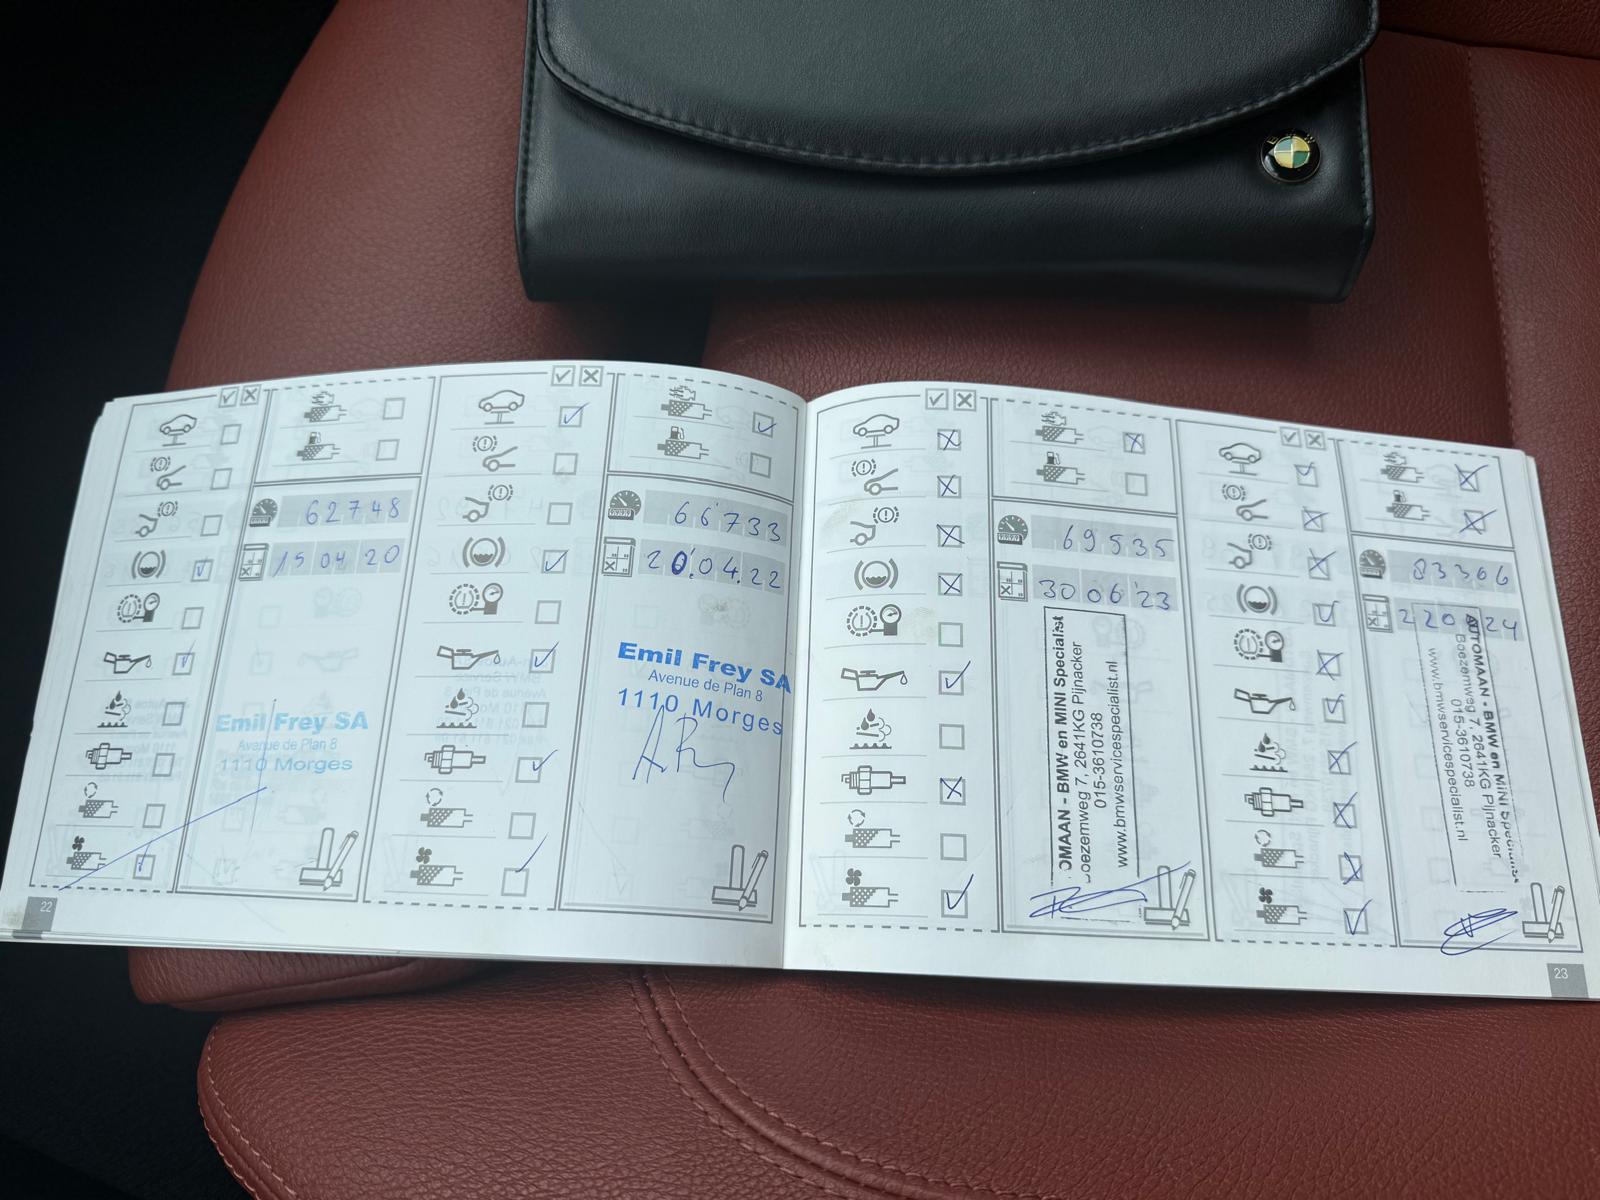 BMW
62748
15 04 20
Emil Frey SA
Avenue de Plan 8
1110 Morges
22
66733
20.04.22
Emil Frey SA
Avenue de Plan 8
1110 Morges
69535
30 06 23
OMAAN - BMW en MINI Specialist
oezemweg 7, 2641KG Pijnacker
015-3610738
www.bmwservicespecialist.nl
83366
24
AUTOMAAN - BMW en MINI Specialist
Boezemweg 7, 2641KG Pijnacker
015-3610738
www.bmwservicespecialist.nl
23